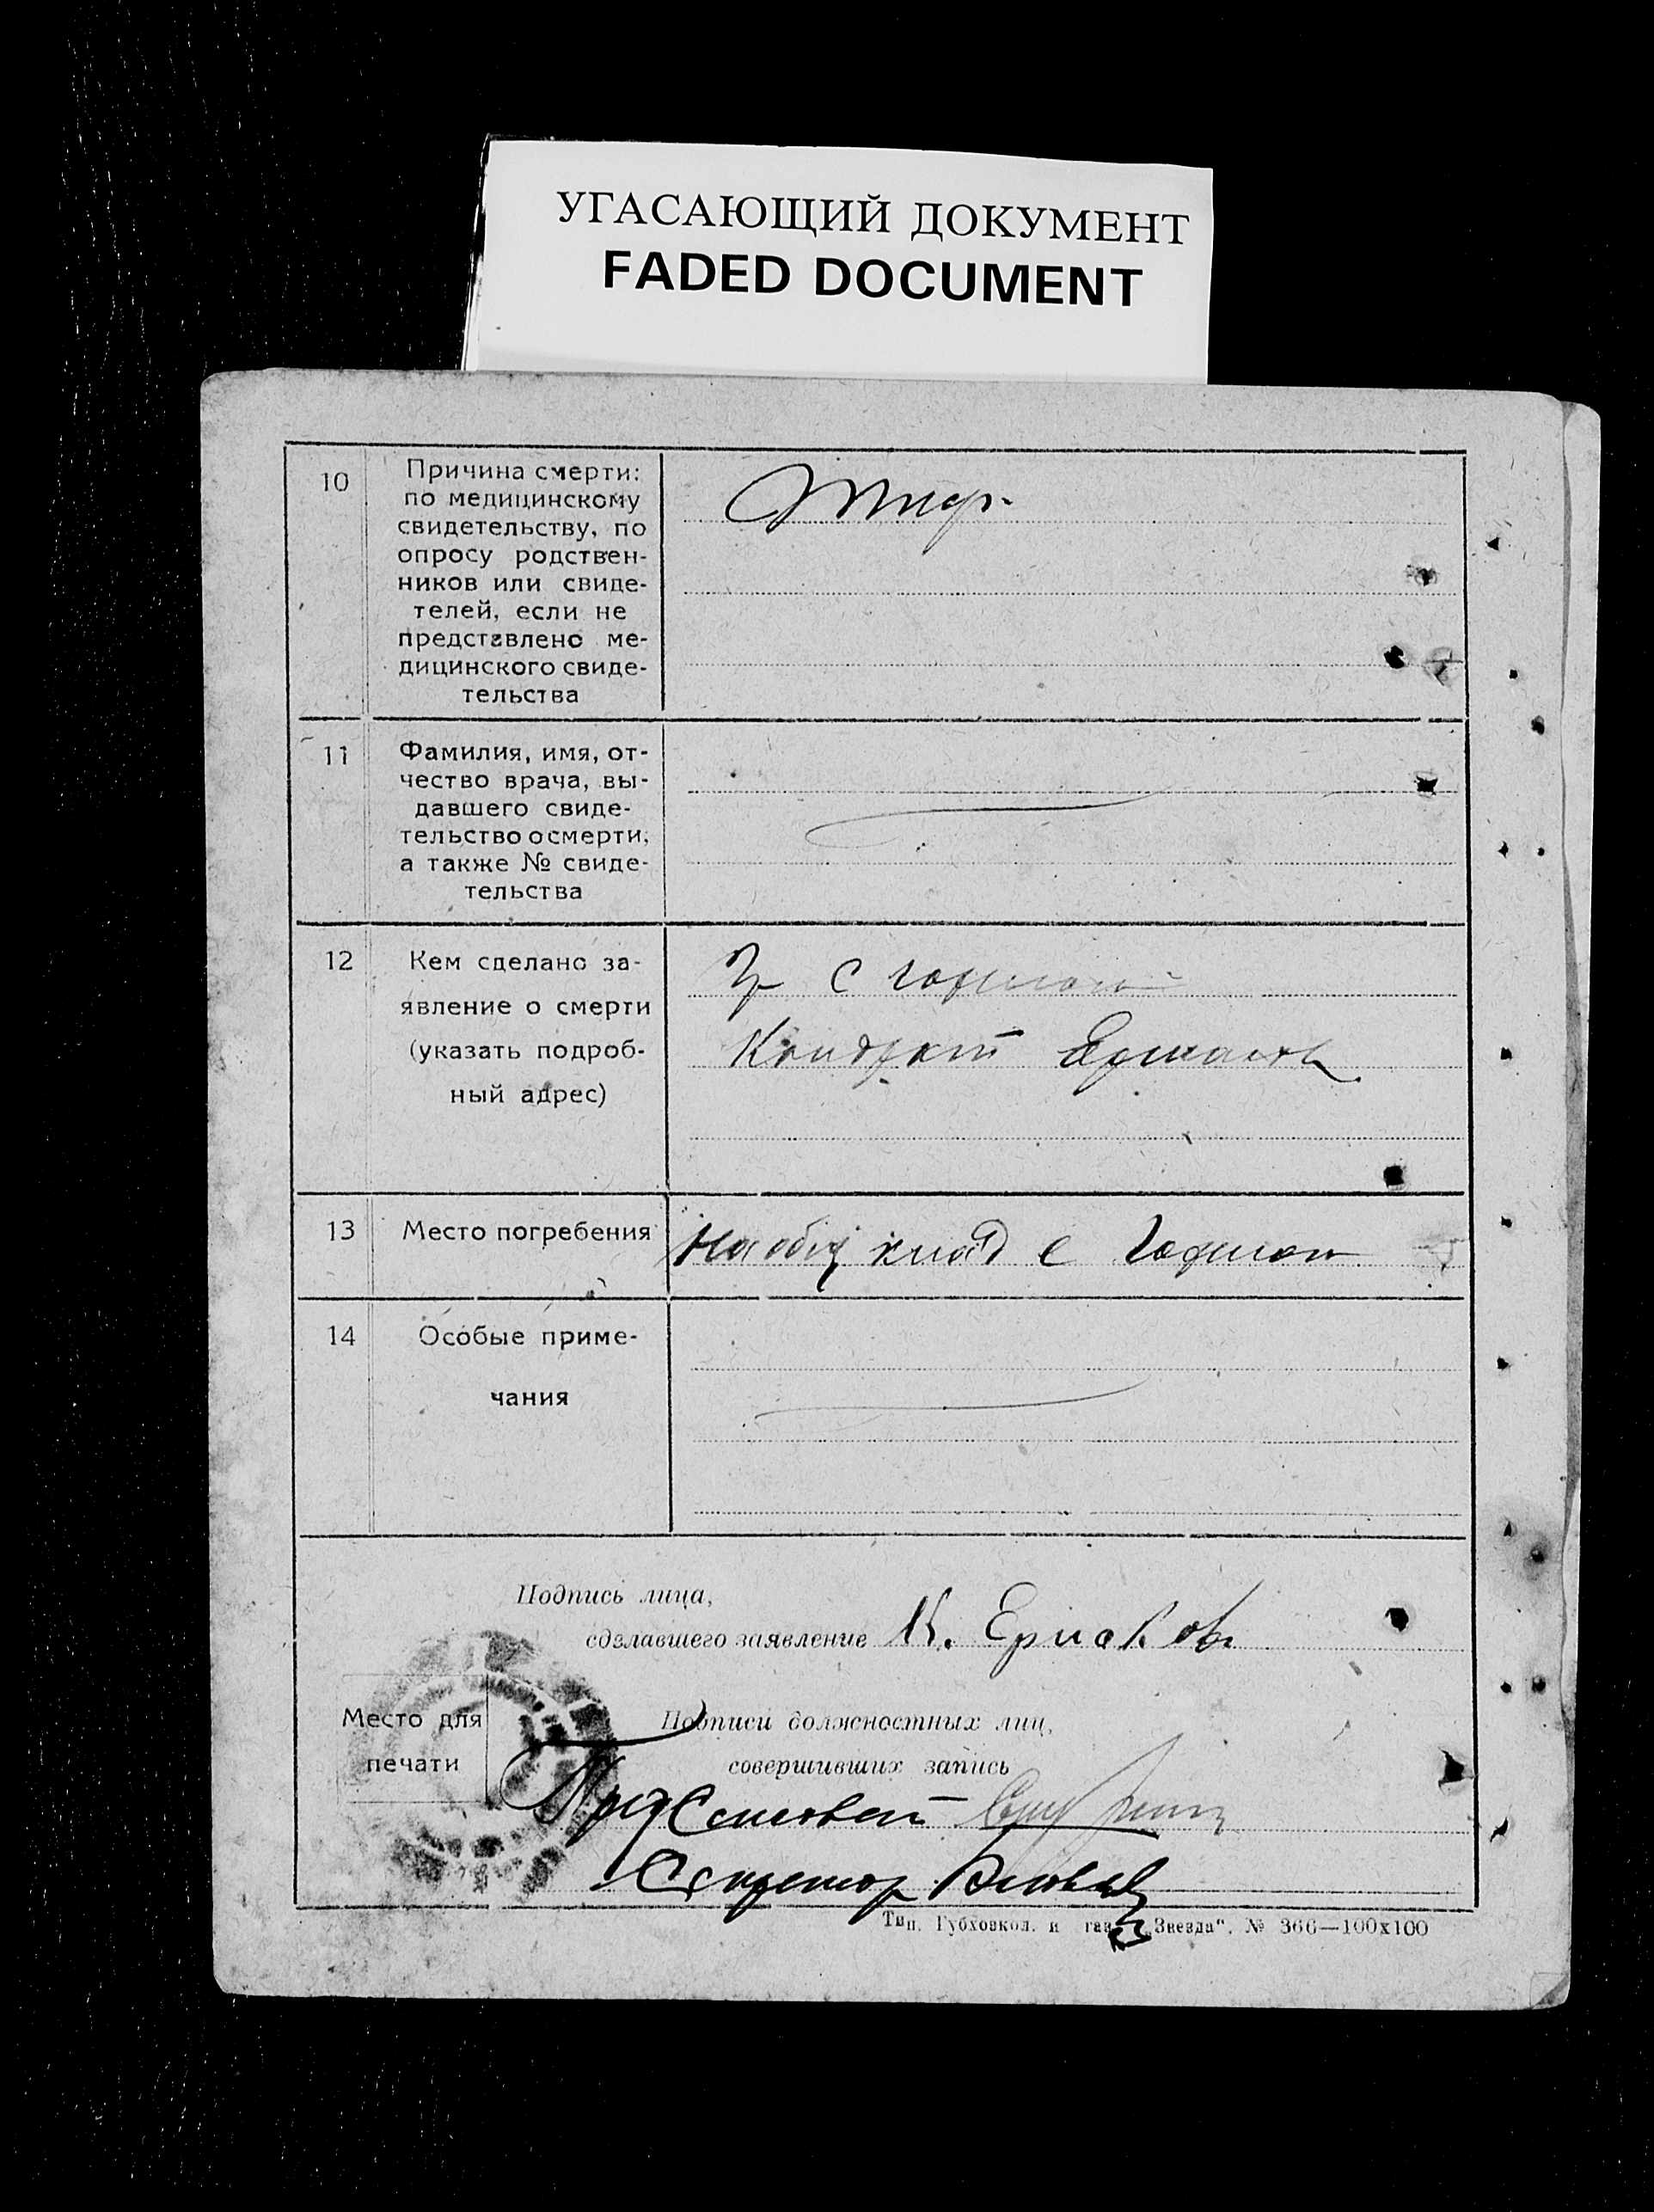 УГАСАЮЩИЙ ДОКУМЕНТ
FADED DOCUMENT
10
Причина смерти:
по медицинскому
свидетельству, по
опросу родствен-
ников или свиде-
телей, если не
представлено ме-
дицинского свиде-
тельства
Тиф
11
Фамилия, имя, от-
чество врача, вы-
давшего свиде-
тельство о смерти,
а также № свиде-
тельства
12
Кем сделано за-
явление о смерти
(указать подроб-
ный адрес)
Гр с
Кондрат Ермаков
13
Место погребения
На общ клад с
14
Особые приме-
чания
Подпись лица,
сделавшего заявление К. Ермаков
Место для
печати
Подписи должностных лиц,
совершивших запись
Пред
Секретор
Тип. Губховкол. и газ. „Звезда“. № 366—100х100